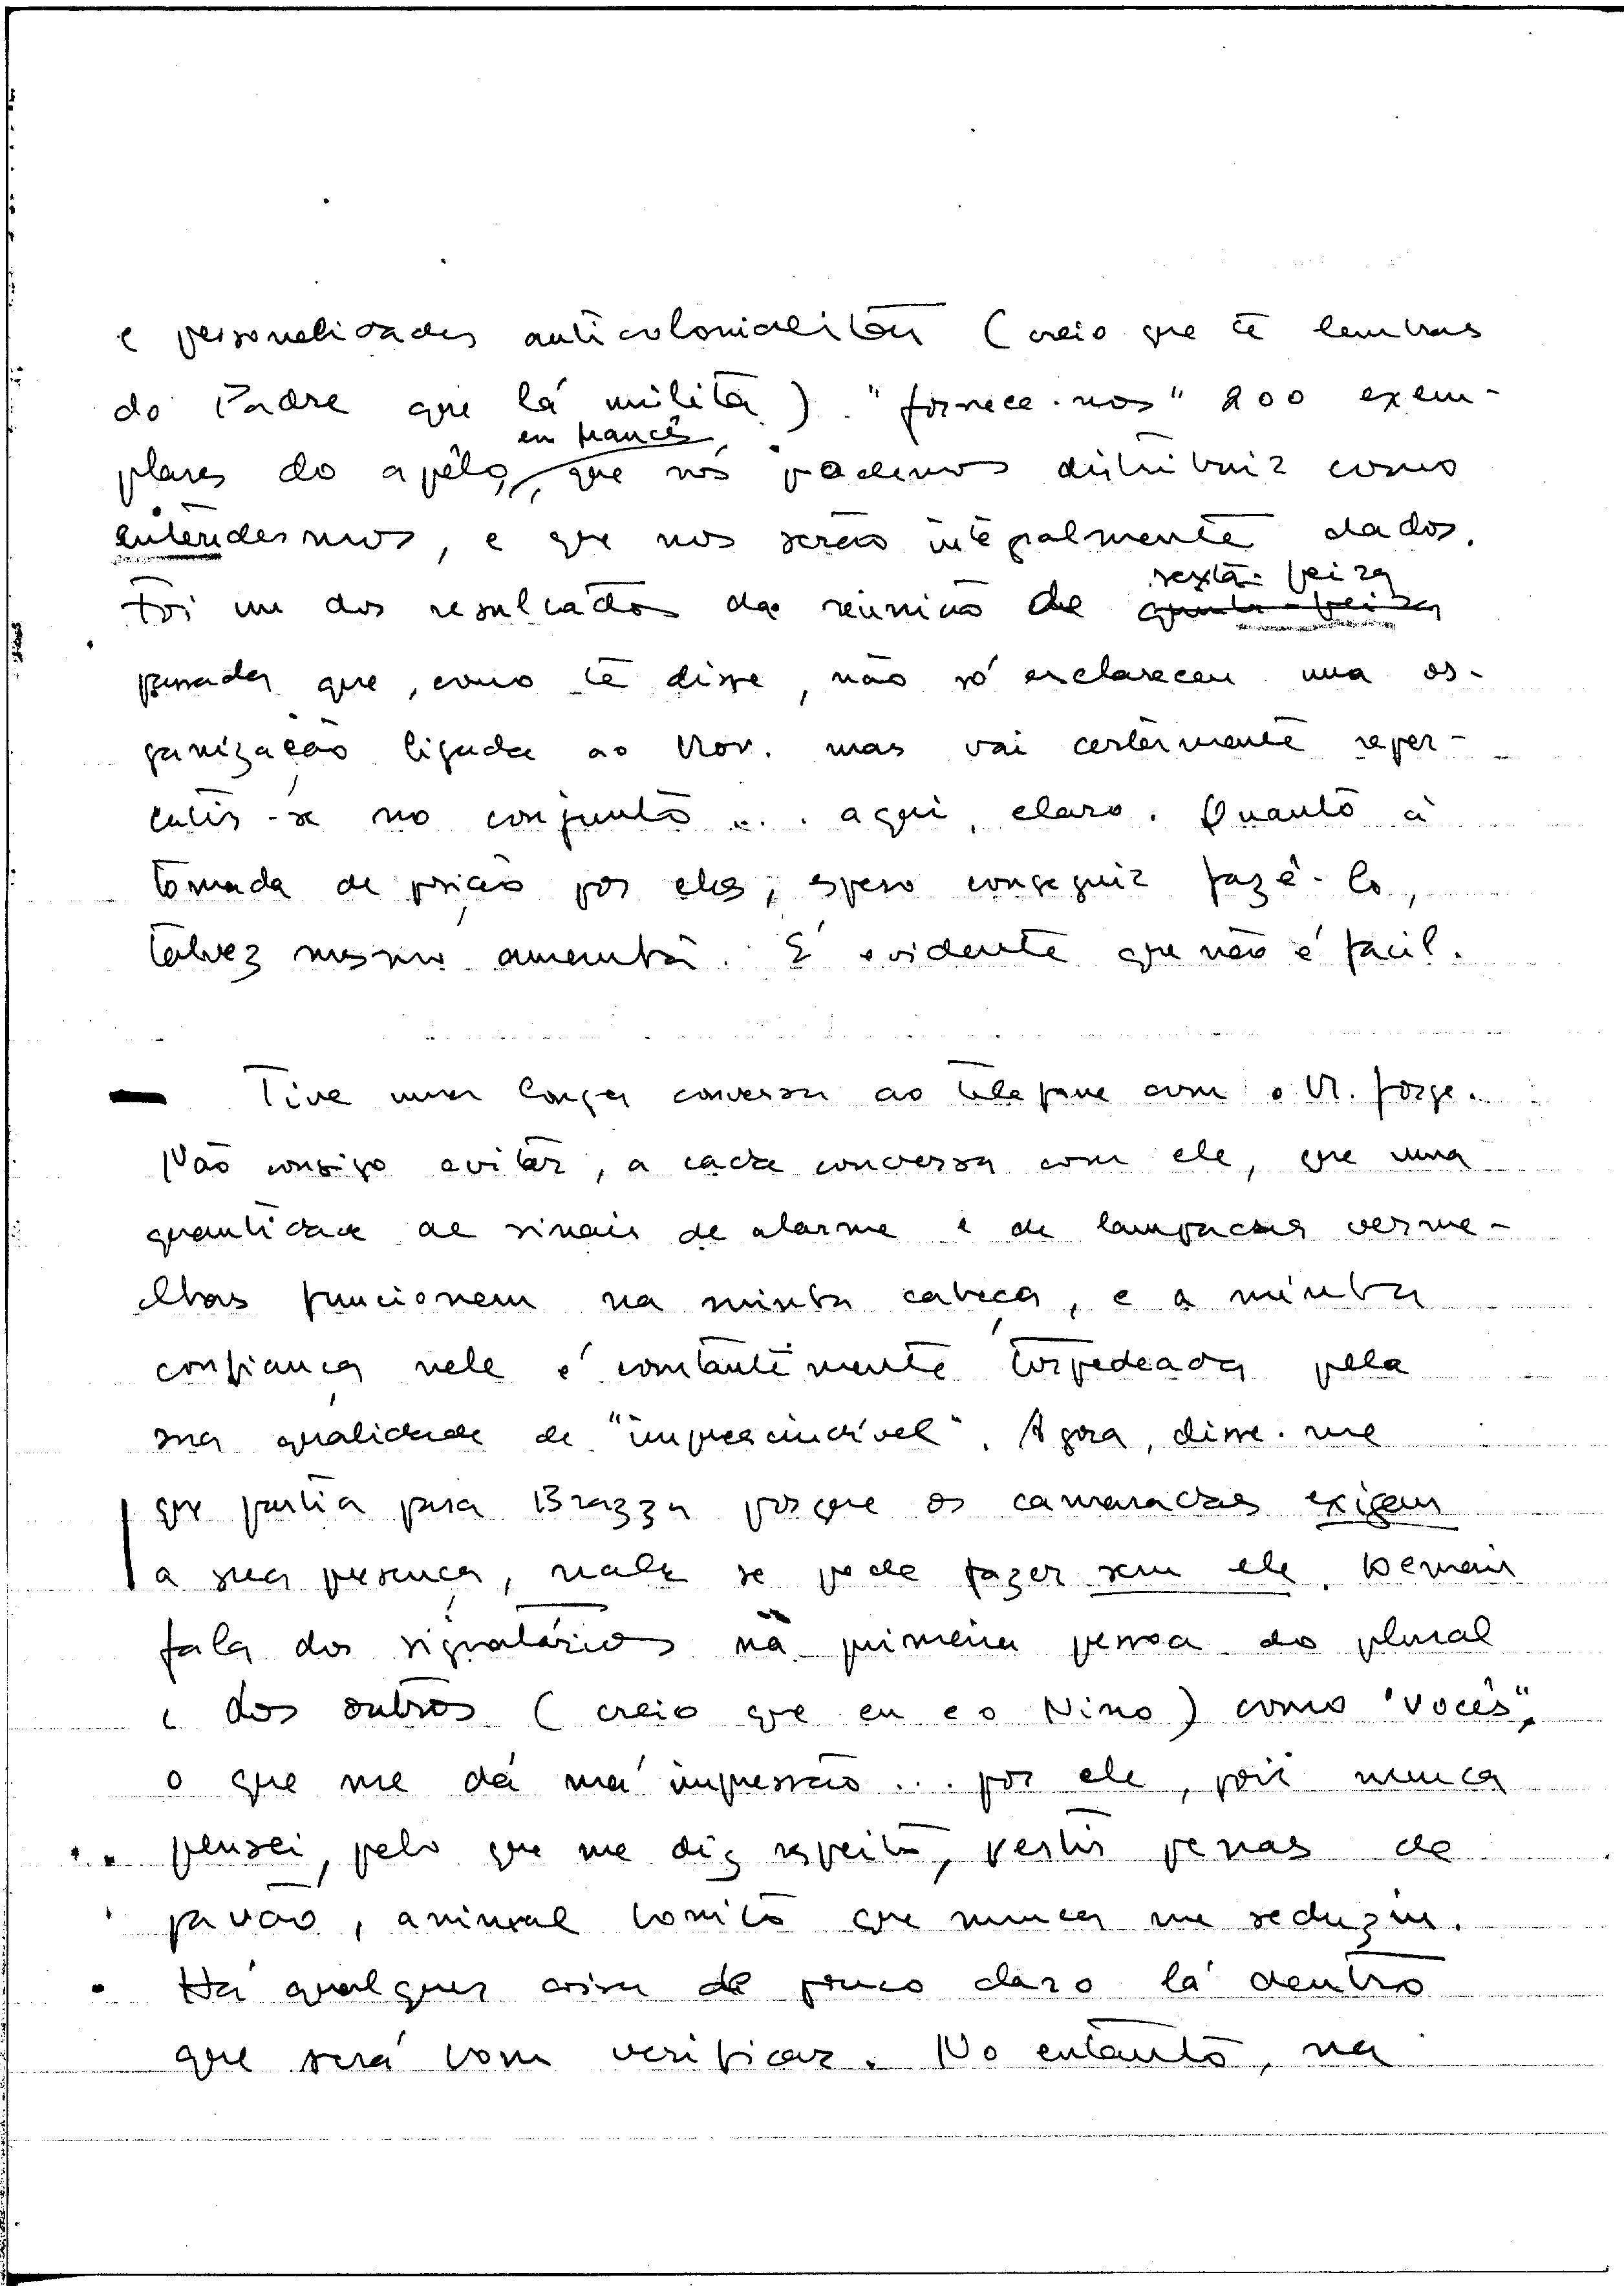 e personalidades anticolonialistas (creio que te lembras
do Padre que lá milita) "fornece-nos" 200 exem-
plares do apêlo, em francês, que nós podemos distribuir como
entendermos, e que nos serão integralmente dados.
Foi um dos resultados da reunião de quinta-feira sexta-feira
passada que, como te disse, não só esclareceu uma or-
ganização ligada ao Mov. mas vai certamente reper-
cutir-se no conjunto ... aqui, claro. Quanto à
tomada de posição por eles, espero conseguir fazê-lo,
talvez mesmo amanhã. É evidente que não é facil.
— Tive uma longa conversa ao telefone com o M. Jorge.
Não consigo evitar, a cada conversa com ele, que uma
quantidade de sinais de alarme e de lampadas verme-
lhas funcionem na minha cabeça, e a minha
confiança nele é constantemente torpedeada pela
sua qualidade de "imprescindível". Agora, disse-me
que partia para Brazza porque os camaradas exigem
a sua presença, nada se pode fazer sem ele. Demais
fala dos signatários na primeira pessoa do plural
e dos outros (creio que eu e o Nino) como "vocês",
o que me dá má impressão ... por ele, pois nunca
pensei, pelo que me diz respeito, vestir penas de
pavão, animal bonito que nunca me seduziu.
Há qualquer coisa de pouco claro lá dentro
que será bom verificar. No entanto, na